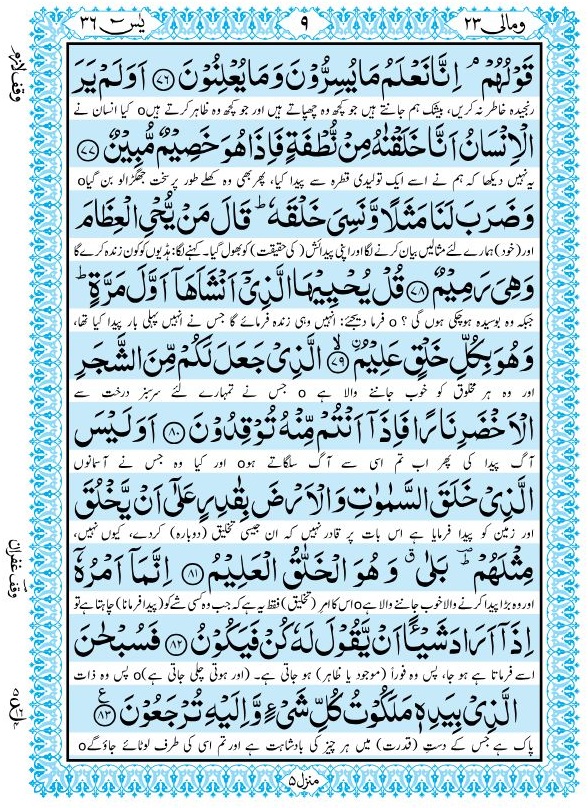 ومالی ۲۳
۹
یٰسٓ ۳۶
وقف لازم
قَوْلُهُمْ ۘ اِنَّا نَعْلَمُ مَا يُسِرُّوْنَ وَمَا يُعْلِنُوْنَ ﴿۷۶﴾ اَوَلَمْ يَرَ
رنجیدہ خاطر نہ کریں، بیشک ہم جانتے ہیں جو کچھ وہ چھپاتے ہیں اور جو کچھ وہ ظاہر کرتے ہیں o کیا انسان نے
الْاِنْسَانُ اَنَّا خَلَقْنٰهُ مِنْ نُّطْفَةٍ فَاِذَا هُوَ خَصِيْمٌ مُّبِيْنٌ ﴿۷۷﴾
یہ نہیں دیکھا کہ ہم نے اسے ایک تولیدی قطرہ سے پیدا کیا، پھر بھی وہ کھلے طور پر سخت جھگڑالو بن گیا o
وَضَرَبَ لَنَا مَثَلًا وَّنَسِيَ خَلْقَهٗ ؕ قَالَ مَنْ يُّحْيِ الْعِظَامَ
اور (خود) ہمارے لئے مثالیں بیان کرنے لگا اور اپنی پیدائش (کی حقیقت) کو بھول گیا۔ کہنے لگا: ہڈیوں کو کون زندہ کرے گا
وَهِيَ رَمِيْمٌ ﴿۷۸﴾ قُلْ يُحْيِيْهَا الَّذِيْۤ اَنْشَاَهَاۤ اَوَّلَ مَرَّةٍ ؕ
جبکہ وہ بوسیدہ ہوچکی ہوں گی؟ o فرما دیجئے: انہیں وہی زندہ فرمائے گا جس نے انہیں پہلی بار پیدا کیا تھا،
وَهُوَ بِكُلِّ خَلْقٍ عَلِيْمُ ۙ﴿۷۹﴾ الَّذِيْ جَعَلَ لَكُمْ مِّنَ الشَّجَرِ
اور وہ ہر مخلوق کو خوب جاننے والا ہے o جس نے تمہارے لئے سرسبز درخت سے
الْاَخْضَرِ نَارًا فَاِذَاۤ اَنْتُمْ مِّنْهُ تُوْقِدُوْنَ ﴿۸۰﴾ اَوَلَيْسَ
آگ پیدا کی پھر اب تم اسی سے آگ سلگاتے ہو o اور کیا وہ جس نے آسمانوں
الَّذِيْ خَلَقَ السَّمٰوٰتِ وَالْاَرْضَ بِقٰدِرٍ عَلٰۤى اَنْ يَّخْلُقَ
اور زمین کو پیدا فرمایا ہے اس بات پر قادر نہیں کہ ان جیسی تخلیق (دوبارہ) کردے، کیوں نہیں،
مِثْلَهُمْ ؕ بَلٰى ۗ وَهُوَ الْخَلّٰقُ الْعَلِيْمُ ﴿۸۱﴾ اِنَّمَاۤ اَمْرُهٗۤ
وقف غفران
اور وہ بڑا پیدا کرنے والا خوب جاننے والا ہے o اس کا امر (تخلیق) فقط یہ ہے کہ جب وہ کسی شے کو (پیدا فرمانا) چاہتا ہے تو
اِذَاۤ اَرَادَ شَيْــًٔا اَنْ يَّقُوْلَ لَهٗ كُنْ فَيَكُوْنُ ﴿۸۲﴾ فَسُبْحٰنَ
اسے فرماتا ہے ہو جا، پس وہ فوراً (موجود یا ظاہر) ہو جاتی ہے۔ (اور ہوتی چلی جاتی ہے) o پس وہ ذات
الَّذِيْ بِيَدِهٖ مَلَكُوْتُ كُلِّ شَيْءٍ وَّاِلَيْهِ تُرْجَعُوْنَ ﴿۸۳﴾ ع
پاک ہے جس کے دستِ (قدرت) میں ہر چیز کی بادشاہت ہے اور تم اسی کی طرف لوٹائے جاؤ گے o
منزل ۵